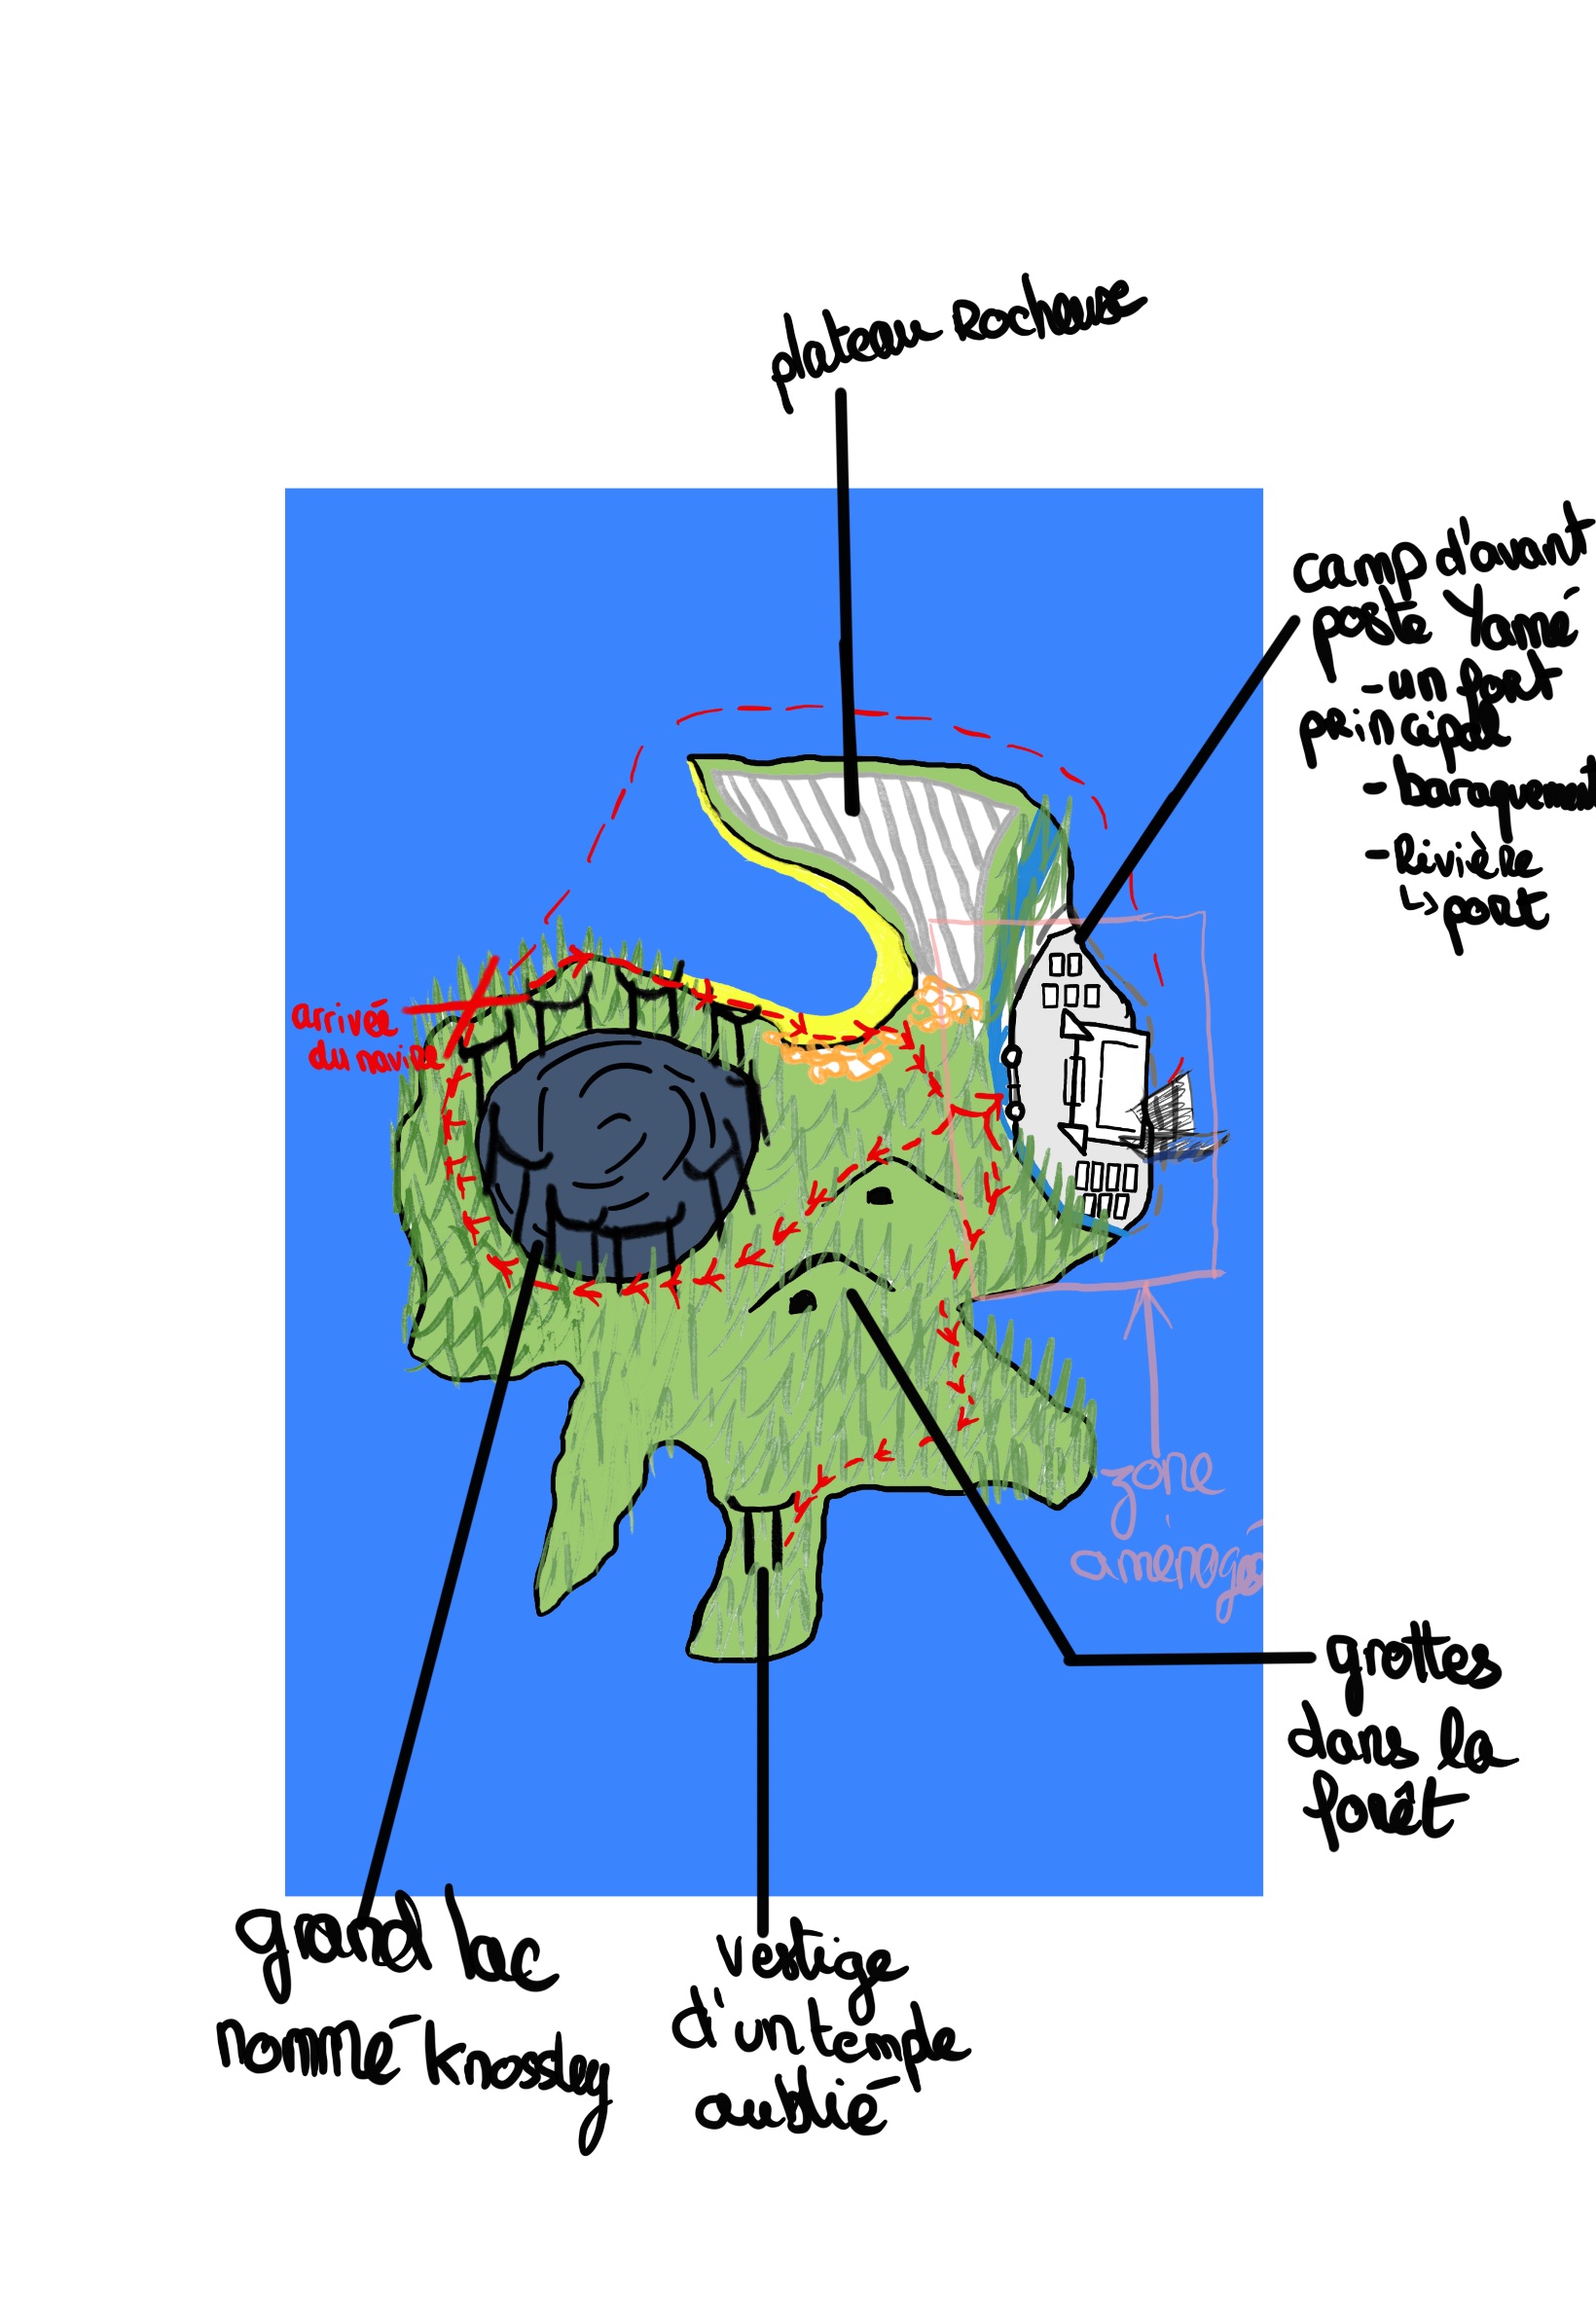 plateau Rocheuse
camp d'avant
poste Yamé
- un fort
principale
- baraquement
- Rivière
↳ port
arrivée
du navire
zone
aménagée
grottes
dans la
forêt
grand lac
nommé Knossley
vestige
d'un temple
oublié